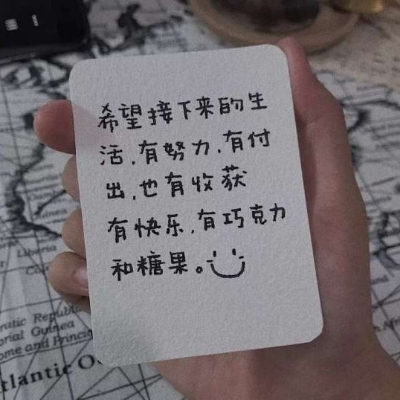 希望接下来的生
活,有努力,有付
出,也有收获
有快乐,有巧克力
和糖果。
Liberia
Equatorial Guinea
Sao Tome and Princip
Atlantic Oc